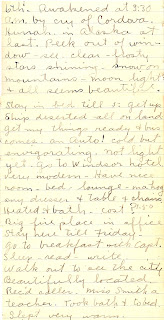 6th. Awakened at 3:30
a.m. by cry of Cordova.
Hurrah, in Alaska at
last. Peek out of win-
dow - see, clear - frosty
stars shining. Snow on
mountains - moon bright
& all seems beautiful.
Stay in bed till 5: get up
Ship deserted all on land
get my things ready & bus
comes. cold but
invigorating. not light
yet. Go to Windsor hotel
very modern. Have nice
room - bed - lounge -
dresser & table & chairs
heated & bath. cost
Big fire place in office
Stay here till Friday.
Go to breakfast with Capt.
Sleep - read - write
Walk out to see the city
Beautifully located.
Read. Miss Smith a
teacher. Took bath & to bed.
Slept very warm.